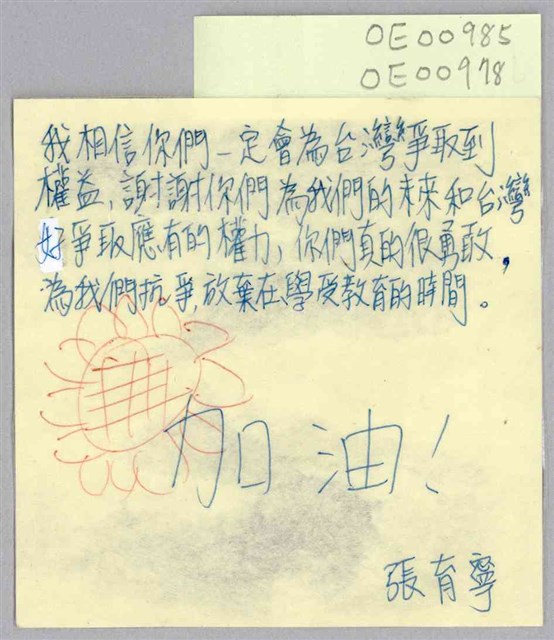 OE00985
OE00978
我相信你們一定會為台灣爭取到
權益、謝謝你們為我們的未來和台灣
好爭取應有的權力、你們真的很勇敢,
為我們抗爭,放棄在學受教育的時間。
加油!
張育寧